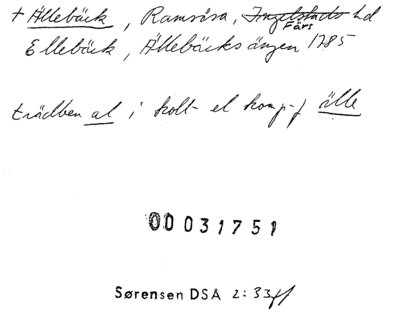 + Ällebäck, Ramsåsa, Ingelstads hd
Färs
Ellebäck, Ällebäcks ängen 1785
trädben al i koll- el komp-f älle
00031751
Sørensen DSA 2:33ff